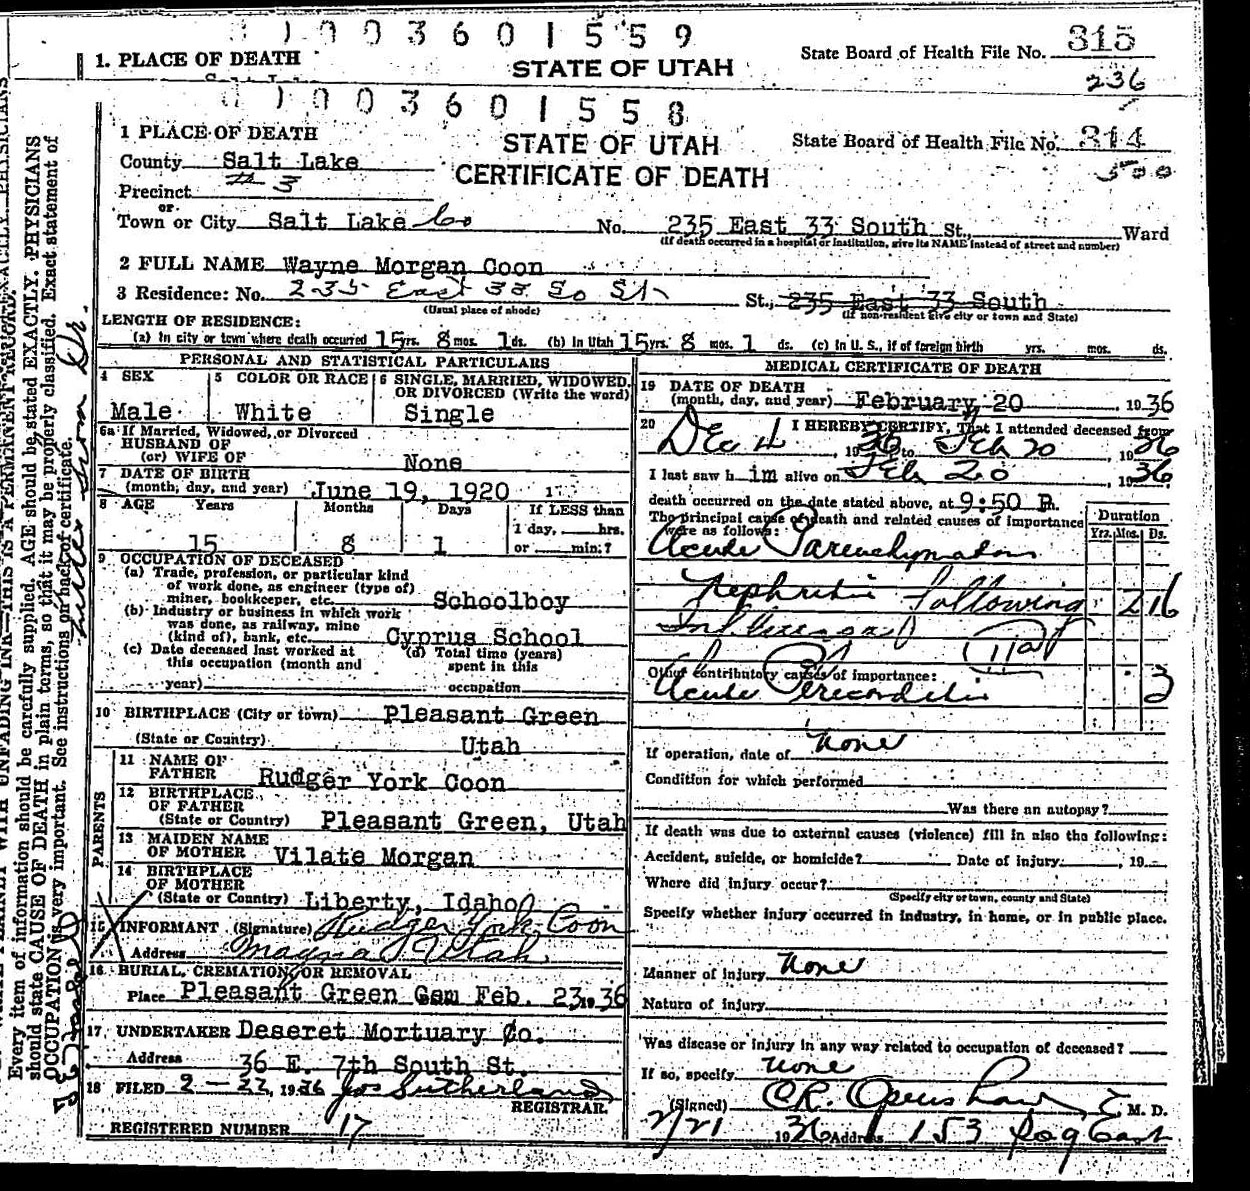 1003601559
1. PLACE OF DEATH
STATE OF UTAH
State Board of Health File No. 315
236
1003601558
1 PLACE OF DEATH
STATE OF UTAH
State Board of Health File No. 314
500
County Salt Lake
CERTIFICATE OF DEATH
Precinct # 3
or
Town or City Salt Lake Co No. 235 East 33 South St., Ward
(If death occurred in a hospital or institution, give its NAME instead of street and number)
2 FULL NAME Wayne Morgan Coon
3 Residence: No. 235 East 33 So St St., 235 East 33 South
(Usual place of abode) (If non-resident give city or town and State)
LENGTH OF RESIDENCE:
(a) In city or town where death occurred 15 yrs. 8 mos. 1 ds. (b) In Utah 15 yrs. 8 mos. 1 ds. (c) In U. S., if of foreign birth yrs. mos. ds.
PERSONAL AND STATISTICAL PARTICULARS
4 SEX
Male
5 COLOR OR RACE
White
6 SINGLE, MARRIED, WIDOWED, OR DIVORCED (Write the word)
Single
6a If Married, Widowed, or Divorced
HUSBAND OF
(or) WIFE OF None
7 DATE OF BIRTH
(month, day, and year) June 19, 1920
8 AGE Years Months Days If LESS than
1 day, hrs.
15 8 1 or min.?
9 OCCUPATION OF DECEASED
(a) Trade, profession, or particular kind
of work done, as engineer (type of)
miner, bookkeeper, etc. Schoolboy
(b) Industry or business in which work
was done, as railway, mine
(kind of), bank, etc. Cyprus School
(c) Date deceased last worked at
this occupation (month and
year)
(d) Total time (years)
spent in this
occupation
10 BIRTHPLACE (City or town) Pleasant Green
(State or Country) Utah
PARENTS
11 NAME OF
FATHER Rudger York Coon
12 BIRTHPLACE
OF FATHER
(State or Country) Pleasant Green, Utah
13 MAIDEN NAME
OF MOTHER Vilate Morgan
14 BIRTHPLACE
OF MOTHER
(State or Country) Liberty, Idaho
15 INFORMANT (Signature) Rudger York Coon
Address Magna Utah
16 BURIAL, CREMATION OR REMOVAL
Place Pleasant Green Cem Feb. 23, 1936
17 UNDERTAKER Deseret Mortuary Co.
Address 36 E. 7th South St.
18 FILED 2-22, 1936 Jos Sutherland
REGISTRAR.
REGISTERED NUMBER 17
MEDICAL CERTIFICATE OF DEATH
19 DATE OF DEATH
(month, day, and year) February 20, 1936
20 I HEREBY CERTIFY, That I attended deceased from
Dec 4, 1936 to Feb 20, 1936
I last saw h im alive on Feb 20, 1936
death occurred on the date stated above, at 9:50 P. m.
The principal cause of death and related causes of importance
were as follows:
Duration
Yrs. Mos. Ds.
Acute Parenchymatous
Nephritis following 2 16
Influenza
Other contributory causes of importance:
Acute Pericarditis 3
If operation, date of None
Condition for which performed
Was there an autopsy?
If death was due to external causes (violence) fill in also the following:
Accident, suicide, or homicide? Date of injury , 19
Where did injury occur?
(Specify city or town, county and State)
Specify whether injury occurred in industry, in home, or in public place.
Manner of injury None
Nature of injury
Was disease or injury in any way related to occupation of deceased?
If so, specify None
(Signed) C.R. Openshaw M. D.
2/21 1936 Address 153 So 9 East
Every item of information should be carefully supplied. AGE should be stated EXACTLY. PHYSICIANS
should state CAUSE OF DEATH in plain terms, so that it may be properly classified. Exact statement of
OCCUPATION is very important. See instructions on back of certificate.